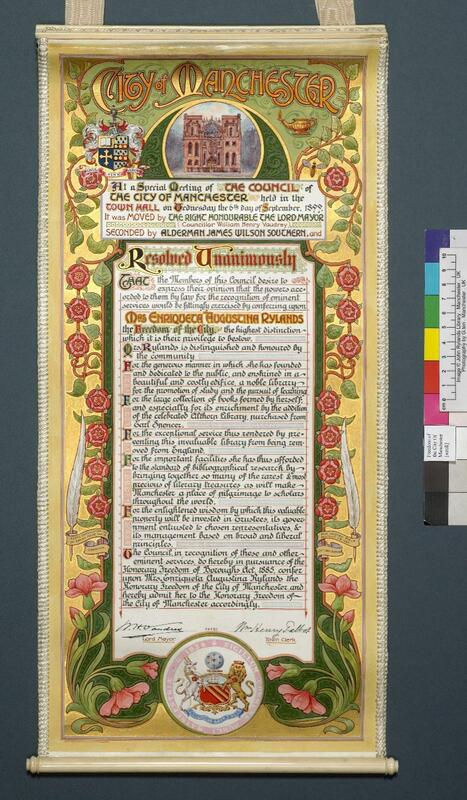 CITY of MANCHESTER
At a Special Meeting of THE COUNCIL of
THE CITY OF MANCHESTER held in the
TOWN HALL on Wednesday the 6th Day of September, 1899
It was MOVED by THE RIGHT HONOURABLE THE LORD MAYOR
(Councillor William Henry Vaudrey)
SECONDED by ALDERMAN JAMES WILSON SOUTHERN, and
Resolved Unanimously
THAT the Members of this Council desire to
express their opinion that the powers acc-
orded to them by law for the recognition of eminent
services would be fittingly exercised by conferring upon
MRS ENRIQUETA AUGUSTINA RYLANDS
the Freedom of the City, the highest distinction
which it is their privilege to bestow.
Mrs Rylands is distinguished and honoured by
the community
For the generous manner in which she has founded
and dedicated to the public, and enshrined in a
beautiful and costly edifice, a noble library
for the promotion of study and the pursuit of learning
For the large collection of books formed by herself,
and especially for its enrichment by the addition
of the celebrated Althorp Library, purchased from
Earl Spencer.
For the exceptional service thus rendered by pre-
venting this invaluable library from being rem-
oved from England.
For the important facilities she has thus afforded
to the standard of bibliographical research by
bringing together so many of the rarest & most
precious of literary treasures as will make
Manchester a place of pilgrimage to scholars
throughout the world.
For the enlightened wisdom by which this valuable
property will be invested in Trustees, its gover-
nment entrusted to chosen representatives, &
its management based on broad and liberal
principles.
The Council, in recognition of these and other
eminent services, do hereby in pursuance of the
Honorary Freedom of Boroughs Act, 1885, confer
upon Mrs Enriqueta Augustina Rylands the
Honorary Freedom of the City of Manchester, and
hereby admit her to the Honorary Freedom of
the City of Manchester accordingly.
W H Vaudrey
Wm Henry Talbot
Lord Mayor
Town Clerk
Image © John Rylands Library Manchester, UK
Photographs by G.
Freedom of
the City of
Manchester